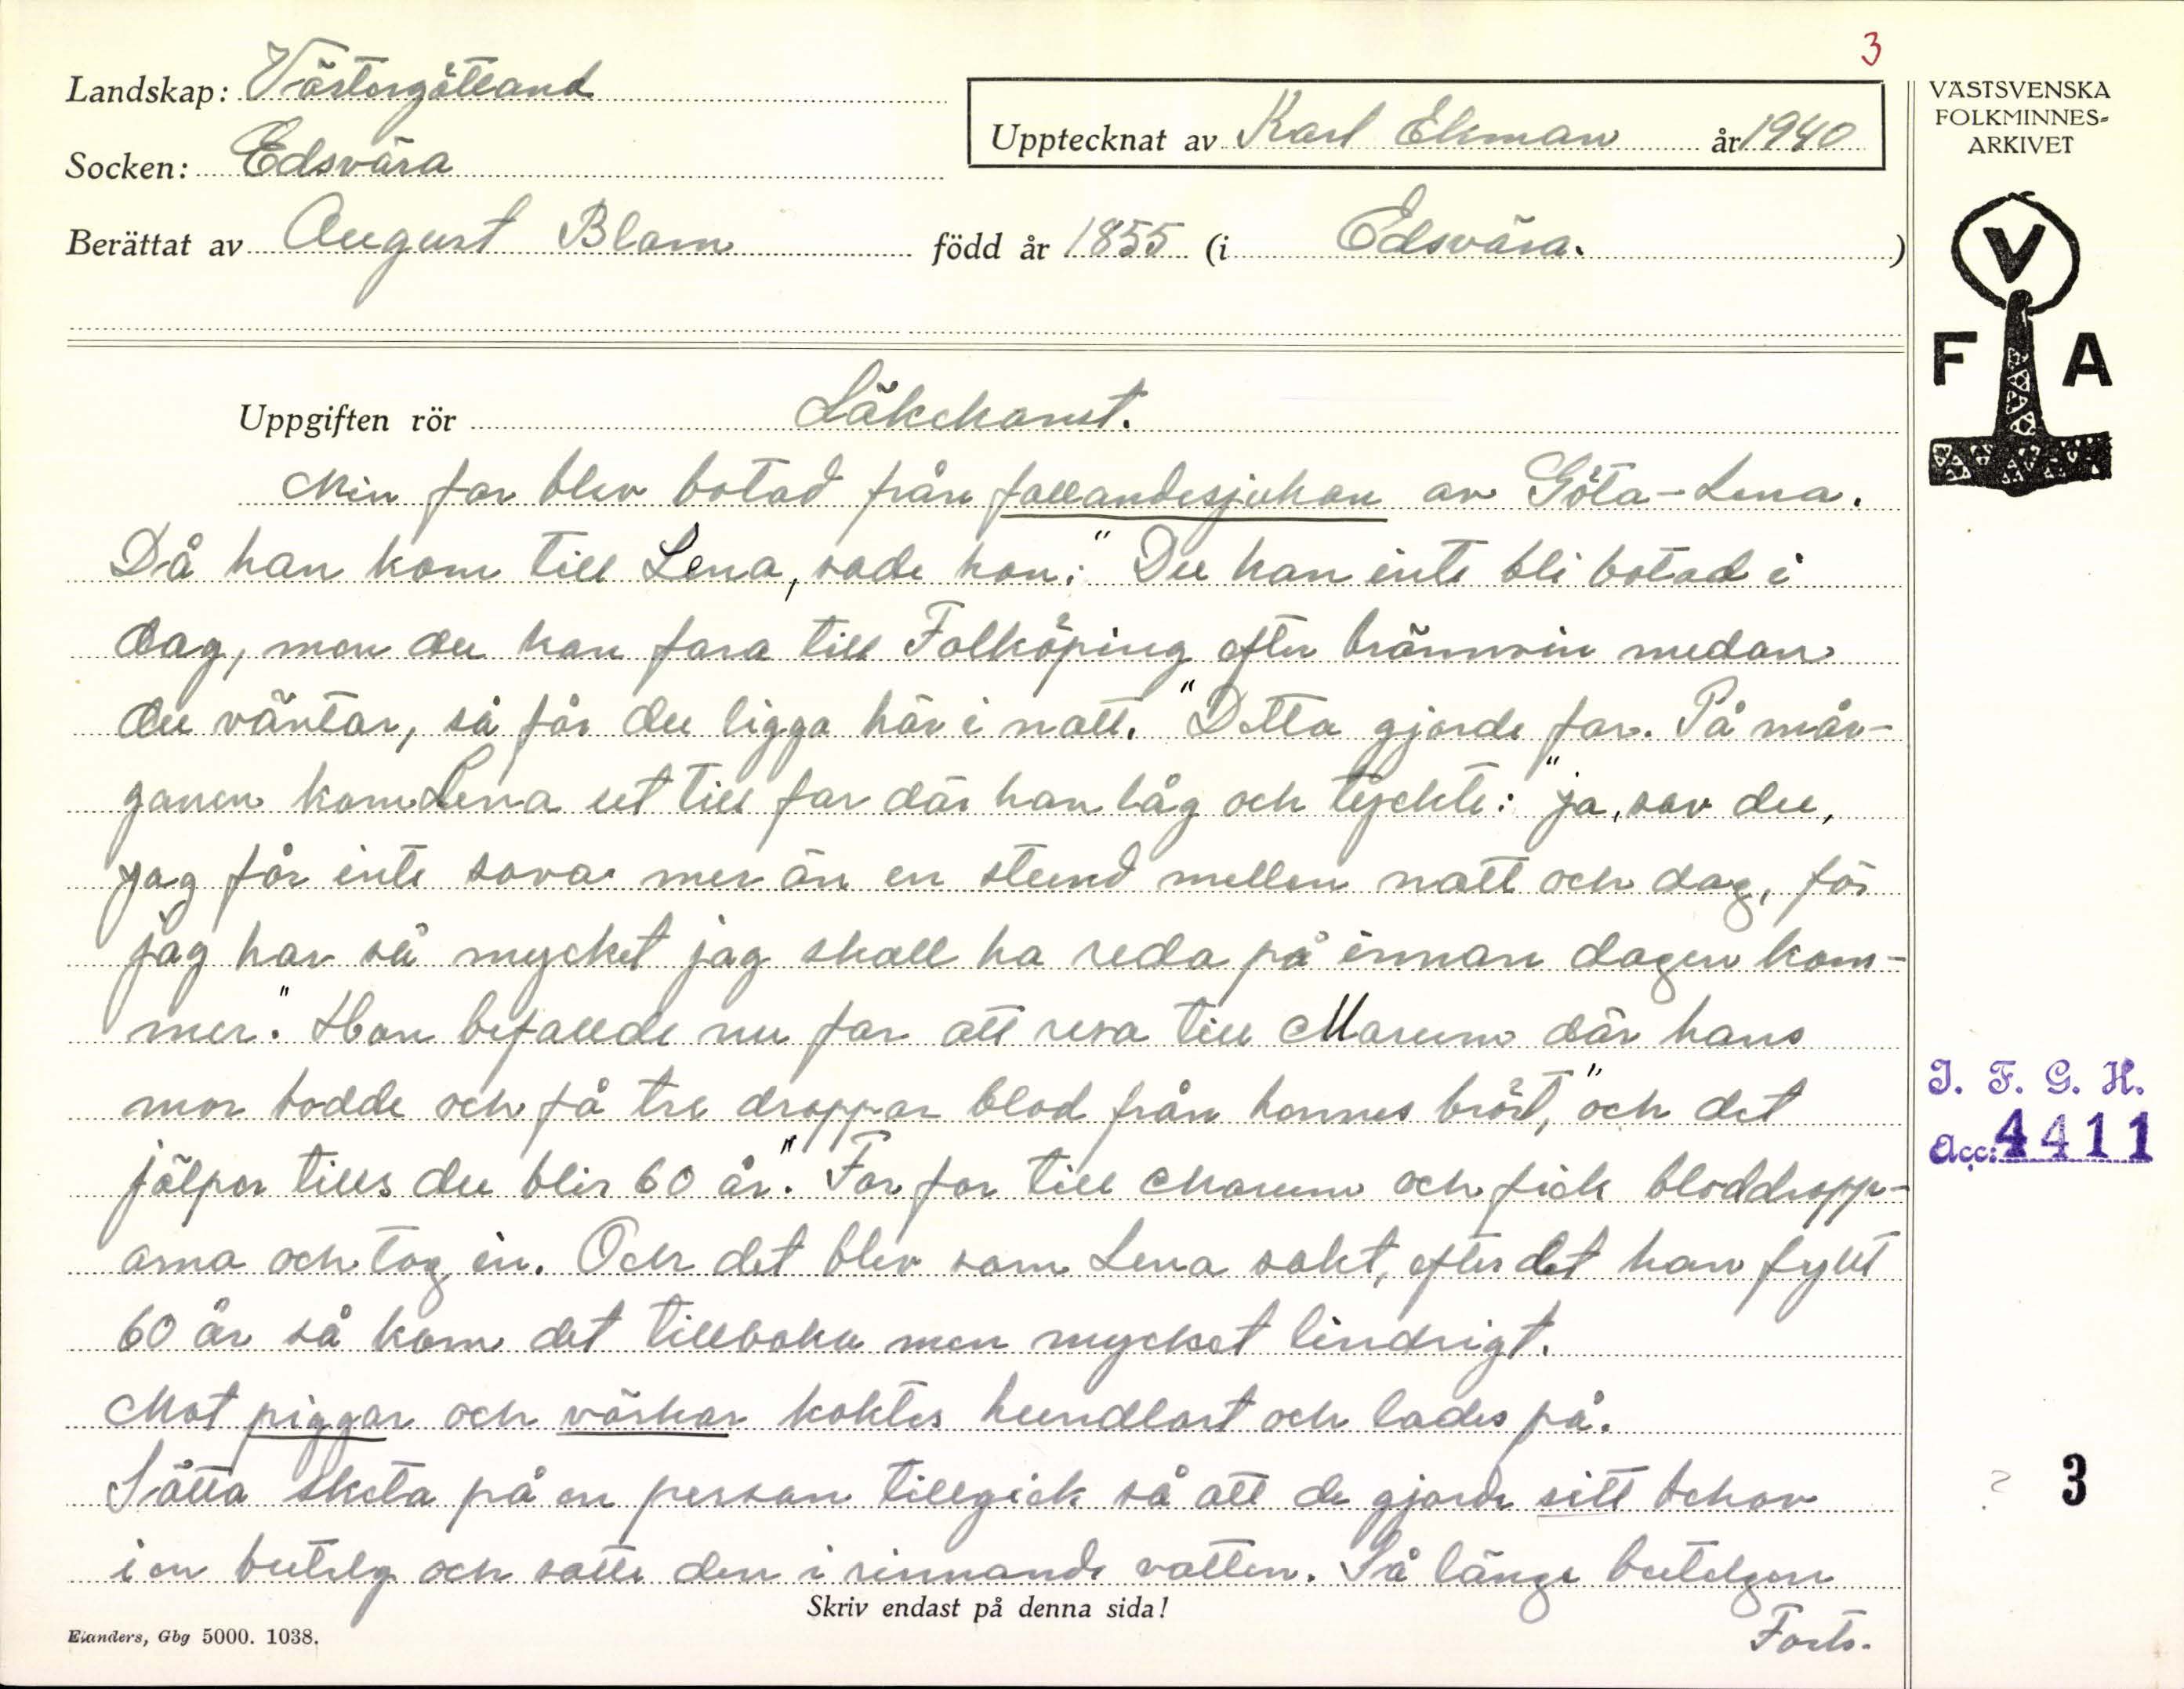 3
Landskap: Västergötland
Upptecknat av Karl Ekman år 1940
Socken: Edsvära
Berättat av August Blom född år 1855 (i Edsvära. )
VÄSTSVENSKA
FOLKMINNES-
ARKIVET
V
F A
Uppgiften rör Läkekonst.
Min far blev botad från fallandesjukan av Göta-Lena.
Då han kom till Lena, sade hon: "Du kan inte bli botad i
dag, men du kan fara till Falköping efter brännvin medan
du väntar, så får du ligga här i natt." Detta gjorde far. På mår-
gonen kom Lena ut till far där han låg och tyckte: "ja, sov du,
jag får inte sova mer än en stund mellan natt och dag, för
jag har så mycket jag skall ha reda på innan dagen kom-
mer." Hon befallde nu far att resa till Marum där hans
mor bodde och få tre droppar blod från hennes bröst, "och det
jälper tills du blir 60 år." Far for till Marum och fick bloddropp-
arna och tog in. Och det blev som Lena sakt, efter det han fyllt
60 år så kom det tillbaka men mycket lindrigt.
Mot piggar och värkar koktes hundlort och lades på.
Sätta sketa på en person tillgick så att de gjorde sitt behov
i en butelg och satte den i rinnande vatten. Så länge butelgen
Forts.
Skriv endast på denna sida!
Elanders, Gbg 5000. 1038.
I. F. G. H.
Acc: 4411
? 3